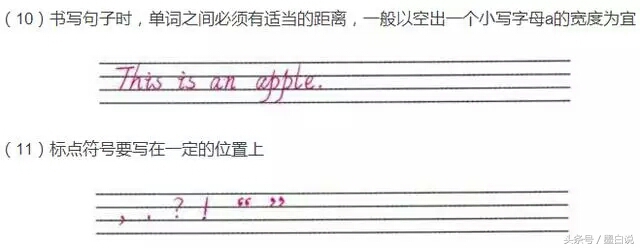 （10）书写句子时，单词之间必须有适当的距离，一般以空出一个小写字母a的宽度为宜
This is an apple.
（11）标点符号要写在一定的位置上
, . ? ! “ ”
头条号 / 墨白说